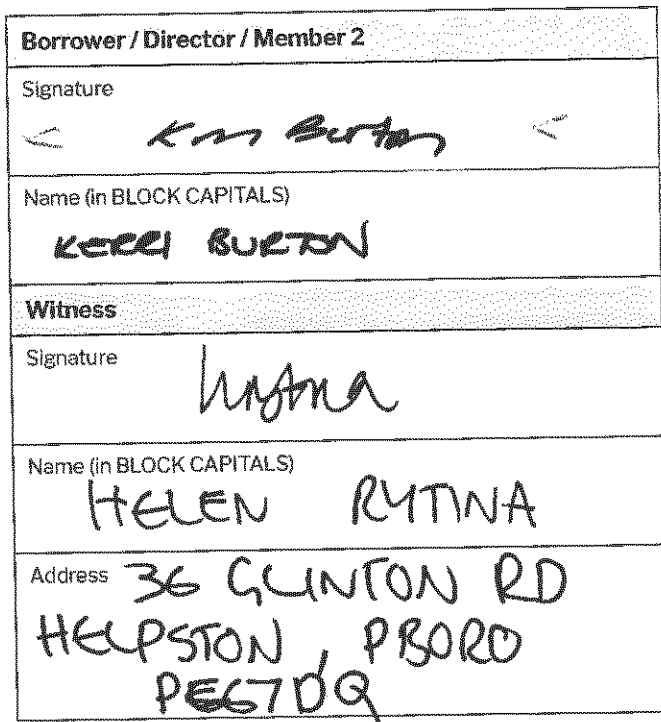 Borrower / Director / Member 2
Signature
< Kerri Burton <
Name (in BLOCK CAPITALS)
KERRI BURTON
Witness
Signature
Name (in BLOCK CAPITALS)
HELEN RYTINA
Address 36 GLINTON RD
HELPSTON, PBORO
PE67DQ